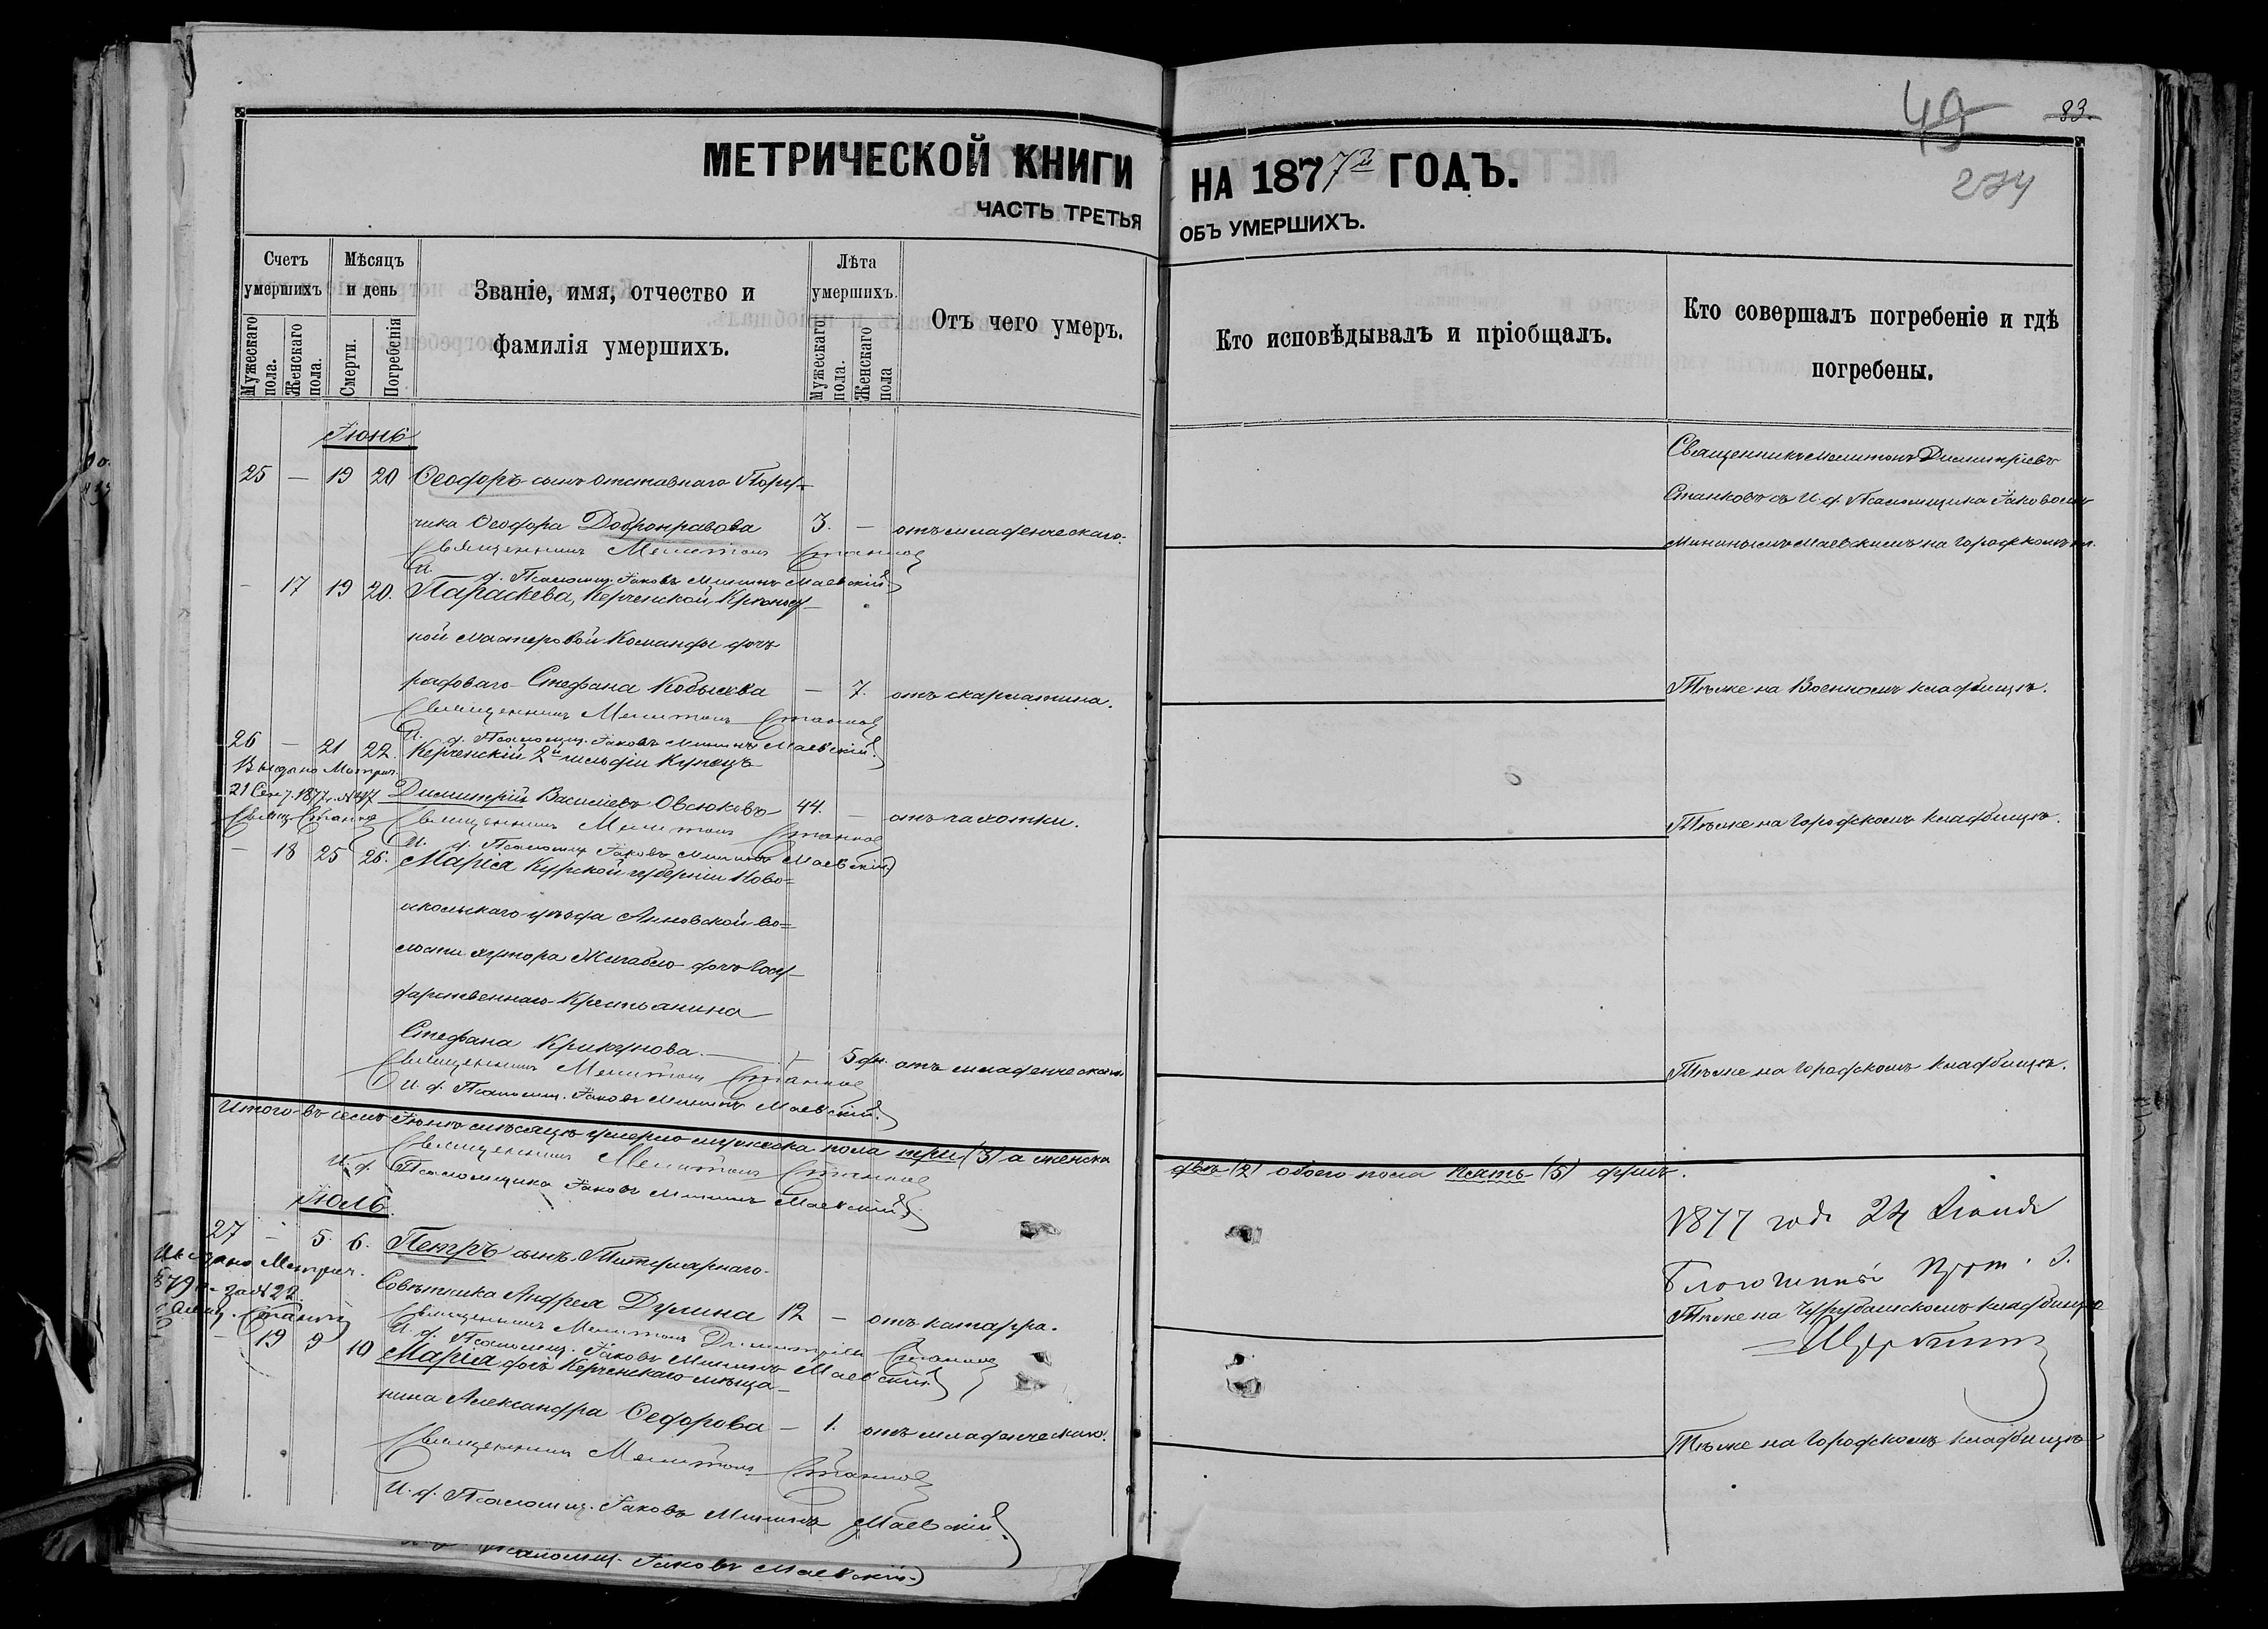 49
83.
274
МЕТРИЧЕСКОЙ КНИГИ НА 1877й ГОДЪ.
ЧАСТЬ ТРЕТЬЯ ОБЪ УМЕРШИХЪ.
Счетъ умершихъ
Мужескаго пола.
Женскаго пола.
Мѣсяцъ и день
Смерти.
Погребенія
Званіе, имя, отчество и
фамилія умершихъ.
Лѣта умершихъ.
Мужескаго пола.
Женскаго пола
Отъ чего умеръ.
Кто исповѣдывалъ и пріобщалъ.
Кто совершалъ погребеніе и гдѣ
погребены.
Іюнь
25 — 19 20 Ѳеодоръ сынъ отставнаго Пору-
чика Ѳеодора Добронравова 3. — отъ младенческаго.
Священникъ Мелитонъ Димитріевъ
Станковъ съ И. д. Псаломщика Іаковомъ
Мининымъ Маевскимъ на Городскомъ кл.
Священникъ Мелитонъ Станковъ
И. д. Псаломщ. Іаковъ Мининъ Маевскій
— 17 19 20. Параскева, Керченской Крѣпост-
ной мастеровой Команды дочь
рядоваго Стефана Кобысева — 7. отъ скарлатина.
Тѣ же на Военномъ кладбищѣ.
Священникъ Мелитонъ Станковъ
И. д. Псаломщ. Іаковъ Мининъ Маевскій
26 — 21 22. Керченскій 2й гильдіи Купецъ
Выдано Метрич.
21 Сен. 1877 г.
Свящ. Станковъ
Димитрій Василіевъ Овсюковъ 44. — отъ чахотки.
Тѣ же на Городскомъ кладбищѣ.
Священникъ Мелитонъ Станковъ
И. д. Псаломщ. Іаковъ Мининъ Маевскій
— 18 25 26. Марія Курской губерніи Ново-
оскольскаго уѣзда Анновской во-
лости хутора дочь Госу-
дарственнаго Крестьянина
Стефана Крикунова. — 5 дн. отъ младенческаго
Тѣ же на Городскомъ кладбищѣ.
Священникъ Мелитонъ Станковъ
И. д. Псаломщ. Іаковъ Мининъ Маевскій
Итого въ семъ Іюнѣ мѣсяцѣ умерло мужеска пола три (3) а женска
двѣ (2) обоего пола пять (5) душъ.
Священникъ Мелитонъ Станковъ
И. д. Псаломщика Іаковъ Мининъ Маевскій
1877 года 24
Благочинный Прот. І.
Іюль.
27 — 5. 6. Петръ сынъ Титулярнаго
Выдано Метрич.
879 г. за № 22
Свящ. Станковъ
Совѣтника Андрея Дулина 12 — отъ катарра.
Тѣ же на кладбищѣ
Священникъ Мелитонъ Димитріевъ Станковъ
И. д. Псаломщ. Іаковъ Мининъ Маевскій
— 19 9 10 Марія дочь Керченскаго мѣща-
нина Александра Ѳедорова — 1. отъ младенческаго.
Тѣ же на Городскомъ кладбищѣ
Священникъ Мелитонъ Станковъ
И. д. Псаломщ. Іаковъ Мининъ Маевскій
Псаломщ. Іаковъ Маевскій